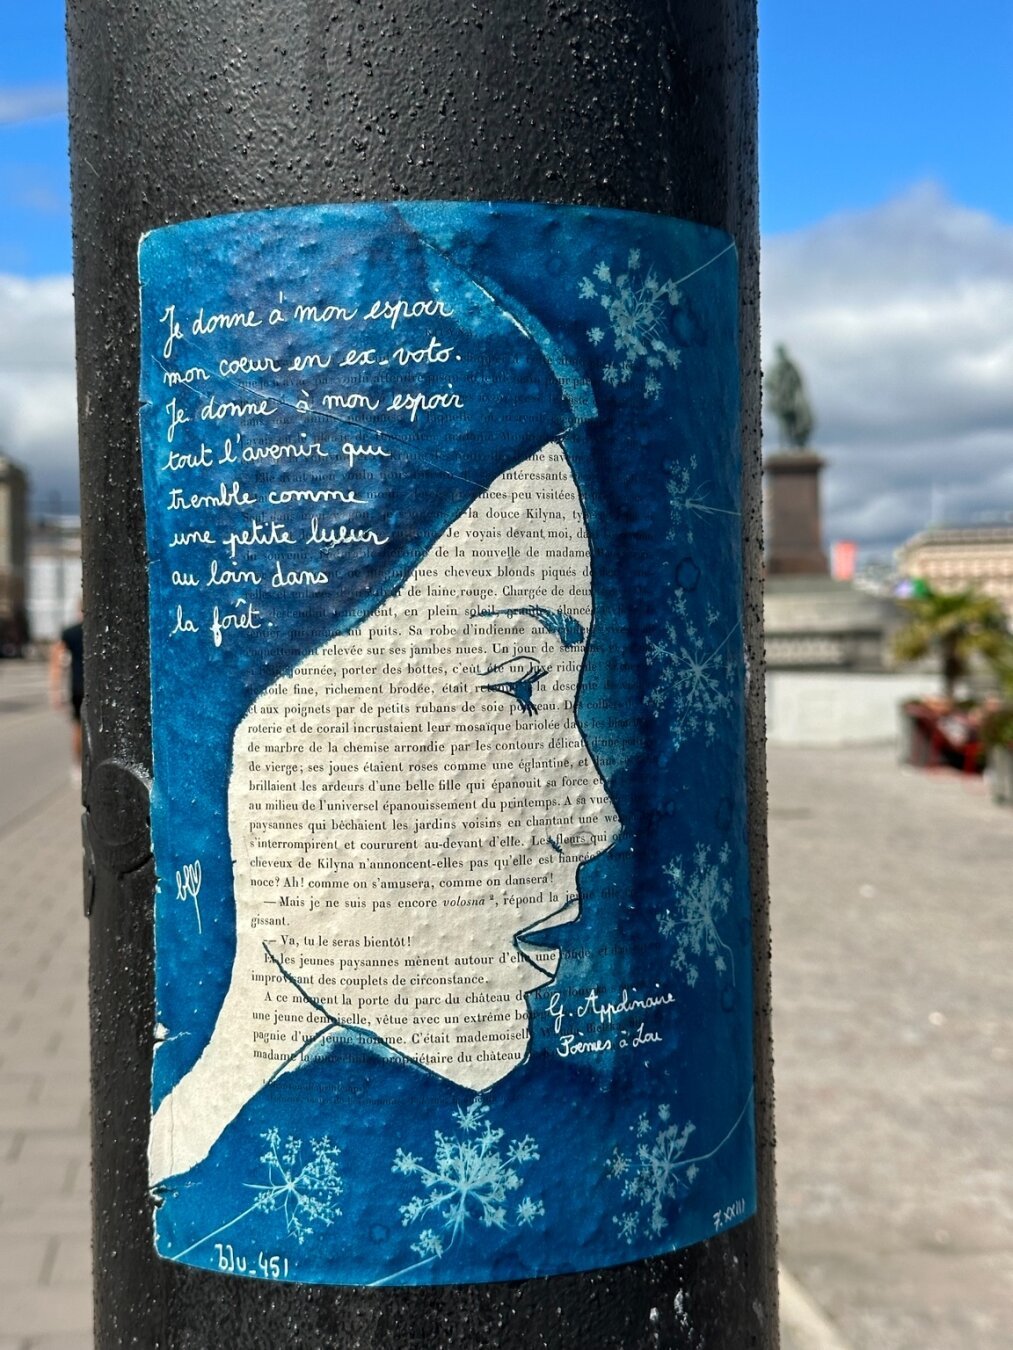 Je donne à mon espoir
mon coeur en ex-voto.
Je donne à mon espoir
tout l'avenir qui
tremble comme
une petite lueur
au loin dans
la forêt.
intéressantes
peu visitées
la douce Kilyna,
Je voyais devant moi, dans
de la nouvelle de madame
ques cheveux blonds piqués de
de laine rouge. Chargée de deux
en plein soleil, grande, élancée
au puits. Sa robe d'indienne aux
relevée sur ses jambes nues. Un jour de semaine
journée, porter des bottes, c'eût été un luxe ridicule!
toile fine, richement brodée, était retenue la
et aux poignets par de petits rubans de soie ponceau. Des colliers
roterie et de corail incrustaient leur mosaïque bariolée dans les
de marbre de la chemise arrondie par les contours délicats d'une
de vierge; ses joues étaient roses comme une églantine, et dans
brillaient les ardeurs d'une belle fille qui épanouit sa force et
au milieu de l'universel épanouissement du printemps. A sa vue,
paysannes qui bêchaient les jardins voisins en chantant une
s'interrompirent et coururent au-devant d'elle. Les fleurs qui
cheveux de Kilyna n'annoncent-elles pas qu'elle est fiancée
noce? Ah! comme on s'amusera, comme on dansera!
— Mais je ne suis pas encore volosna ², répond la jeune fille
gissant.
— Va, tu le seras bientôt!
Et les jeunes paysannes mènent autour d'elle une ronde, et
improvisant des couplets de circonstance.
A ce moment la porte du parc du château de
une jeune demoiselle, vêtue avec un extrême
pagnie d'un jeune homme. C'était mademoiselle
madame la propriétaire du château
blu
G. Appolinaire
Poèmes à Lou
blu_451
7.XXIII